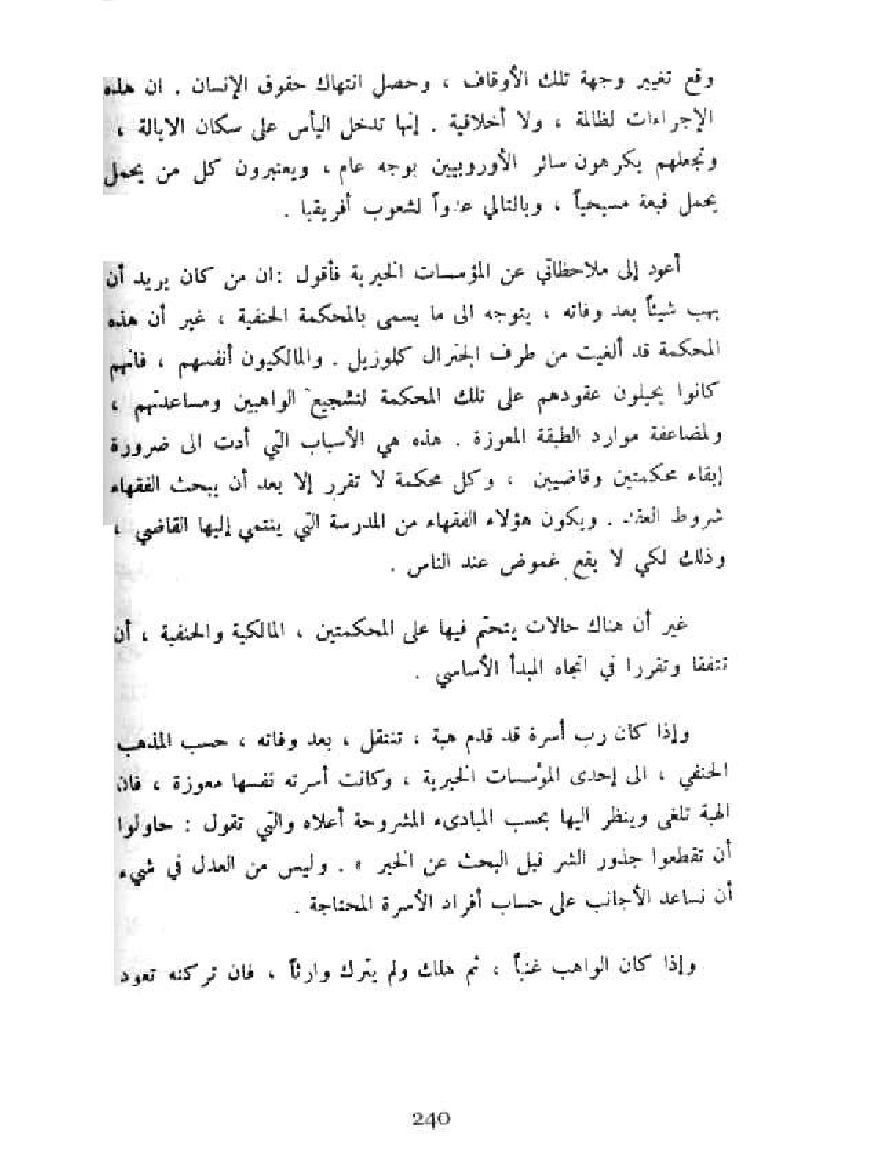 وقع تغيير وجهة تلك الأوقاف ، وحصل انتهاك حقوق الإنسان . ان هذه
الإجراءات لظالمة ، ولا أخلاقية . إنها تدخل اليأس على سكان الايالة ،
وتجعلهم يكرهون سائر الأوروبيين بوجه عام ، ويعتبرون كل من يحمل
يحمل قبعة مسيحياً ، وبالتالي عدواً لشعوب أفريقيا .
أعود إلى ملاحظاتي عن المؤسسات الخيرية فأقول : ان من كان يريد أن
يهب شيئاً بعد وفاته ، يتوجه الى ما يسمى بالمحكمة الحنفية ، غير أن هذه
المحكمة قد ألغيت من طرف الجنرال كلوزيل . والمالكيون أنفسهم ، فانهم
كانوا يحيلون عقودهم على تلك المحكمة لتشجيع الواهبين ومساعدتهم ،
ولمضاعفة موارد الطبقة المعوزة . هذه هي الأسباب التي أدت الى ضرورة
إبقاء محكمتين وقاضيين ، وكل محكمة لا تقرر إلا بعد أن يبحث الفقهاء
شروط العقد . ويكون هؤلاء الفقهاء من المدرسة التي ينتمي إليها القاضي ،
وذلك لكي لا يقع غموض عند الناس .
غير أن هناك حالات يتحتم فيها على المحكمتين ، المالكية والحنفية ، أن
تتفقا وتقررا في اتجاه المبدأ الأساسي .
وإذا كان رب أسرة قد قدم هبة ، تنتقل ، بعد وفاته ، حسب المذهب
الحنفي ، الى إحدى المؤسسات الخيرية ، وكانت أسرته نفسها معوزة ، فان
الهبة تلغى وينظر اليها بحسب المبادىء المشروحة أعلاه والتي تقول : حاولوا
أن تقطعوا جذور الشر قبل البحث عن الخير » . وليس من العدل في شيء
أن نساعد الأجانب على حساب أفراد الأسرة المحتاجة .
وإذا كان الواهب غنياً ، ثم هلك ولم يترك وارثاً ، فان تركته تعود
240